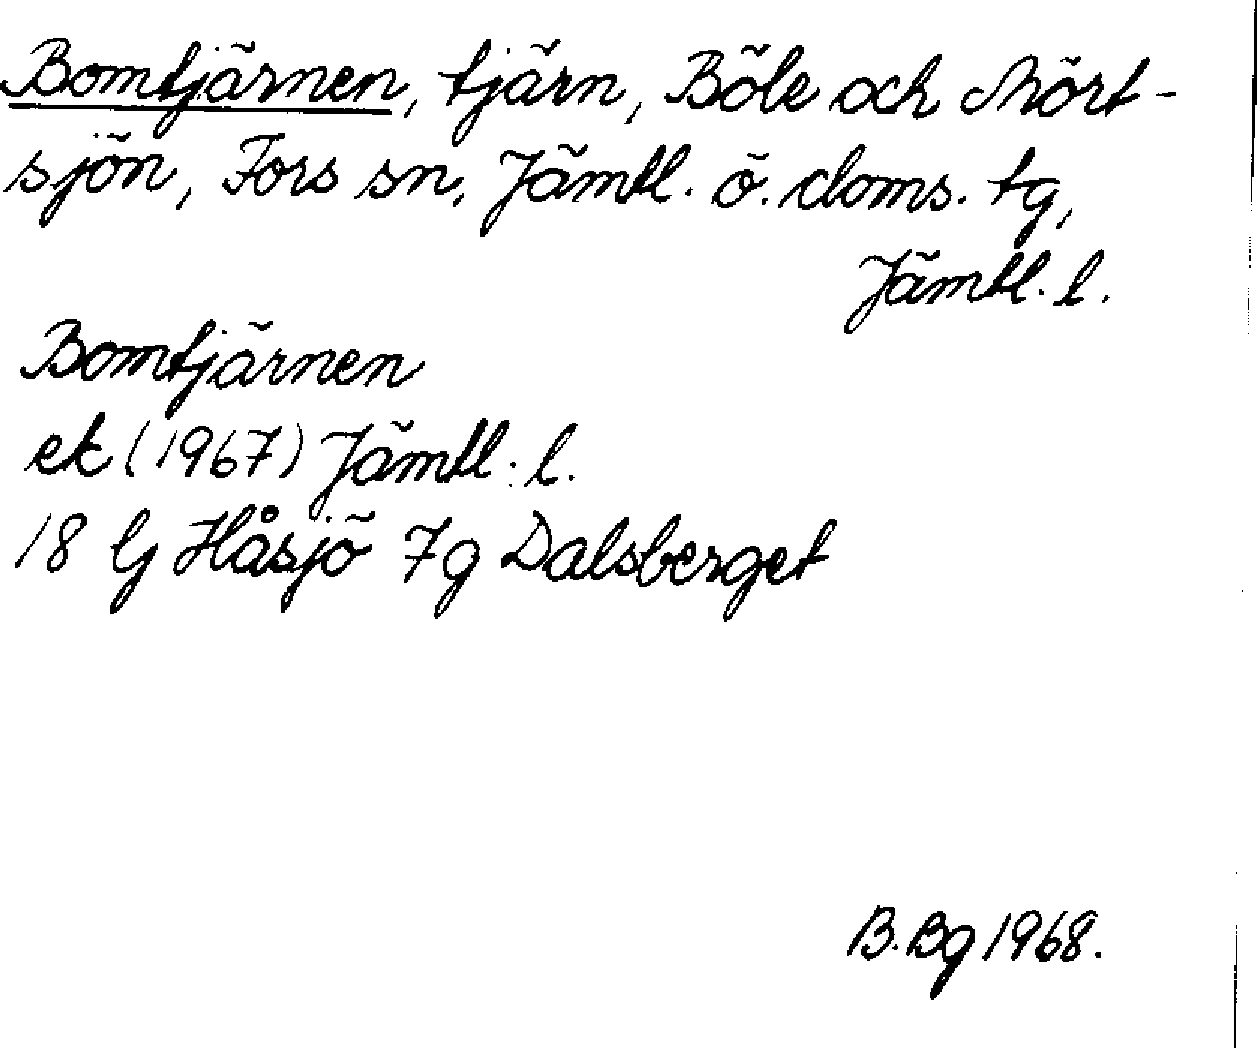 Bomtjärnen, tjärn, Böle och Mört-
sjön, Fors sn, Jämtl. ö. doms. tg,
Jämtl. l.
Bomtjärnen
ek (1967) Jämtl. l.
18 G Håsjö 7g Dalsberget
B. Bg 1968.